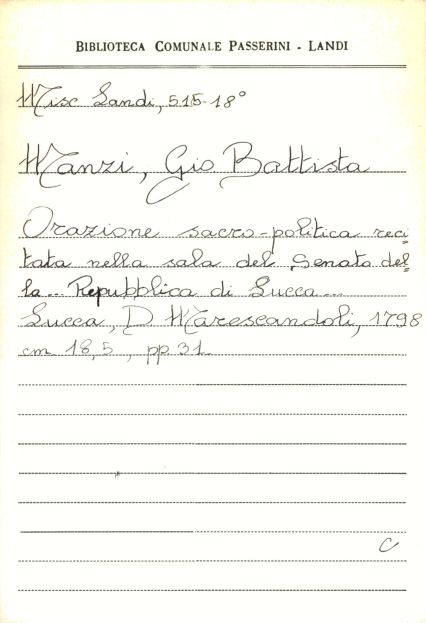 BIBLIOTECA COMUNALE PASSERINI - LANDI
Misc Landi, 515-18°
Manzi, Gio Battista
Orazione sacro-politica reci=
tata nella sala del Senato del=
la... Repubblica di Lucca...
Lucca, D Marescandoli, 1798
cm 18,5, pp. 31
C